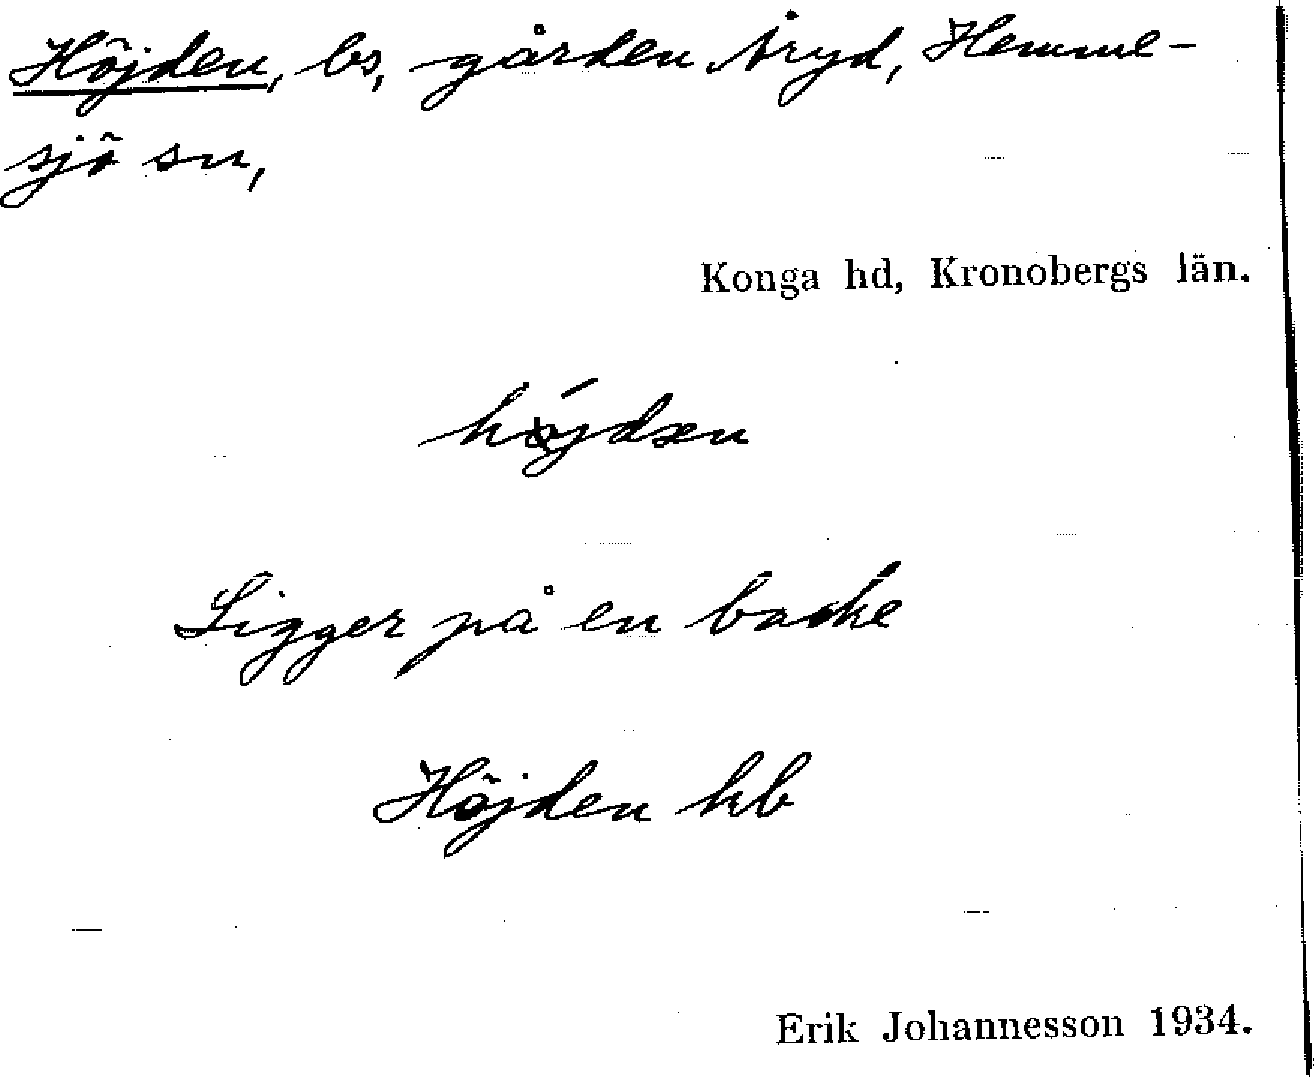 Höjden, bs, gården Åryd, Hemme-
sjö sn,
Konga hd, Kronobergs län.
Ligger på en backe
Höjden hb
Erik Johannesson 1934.